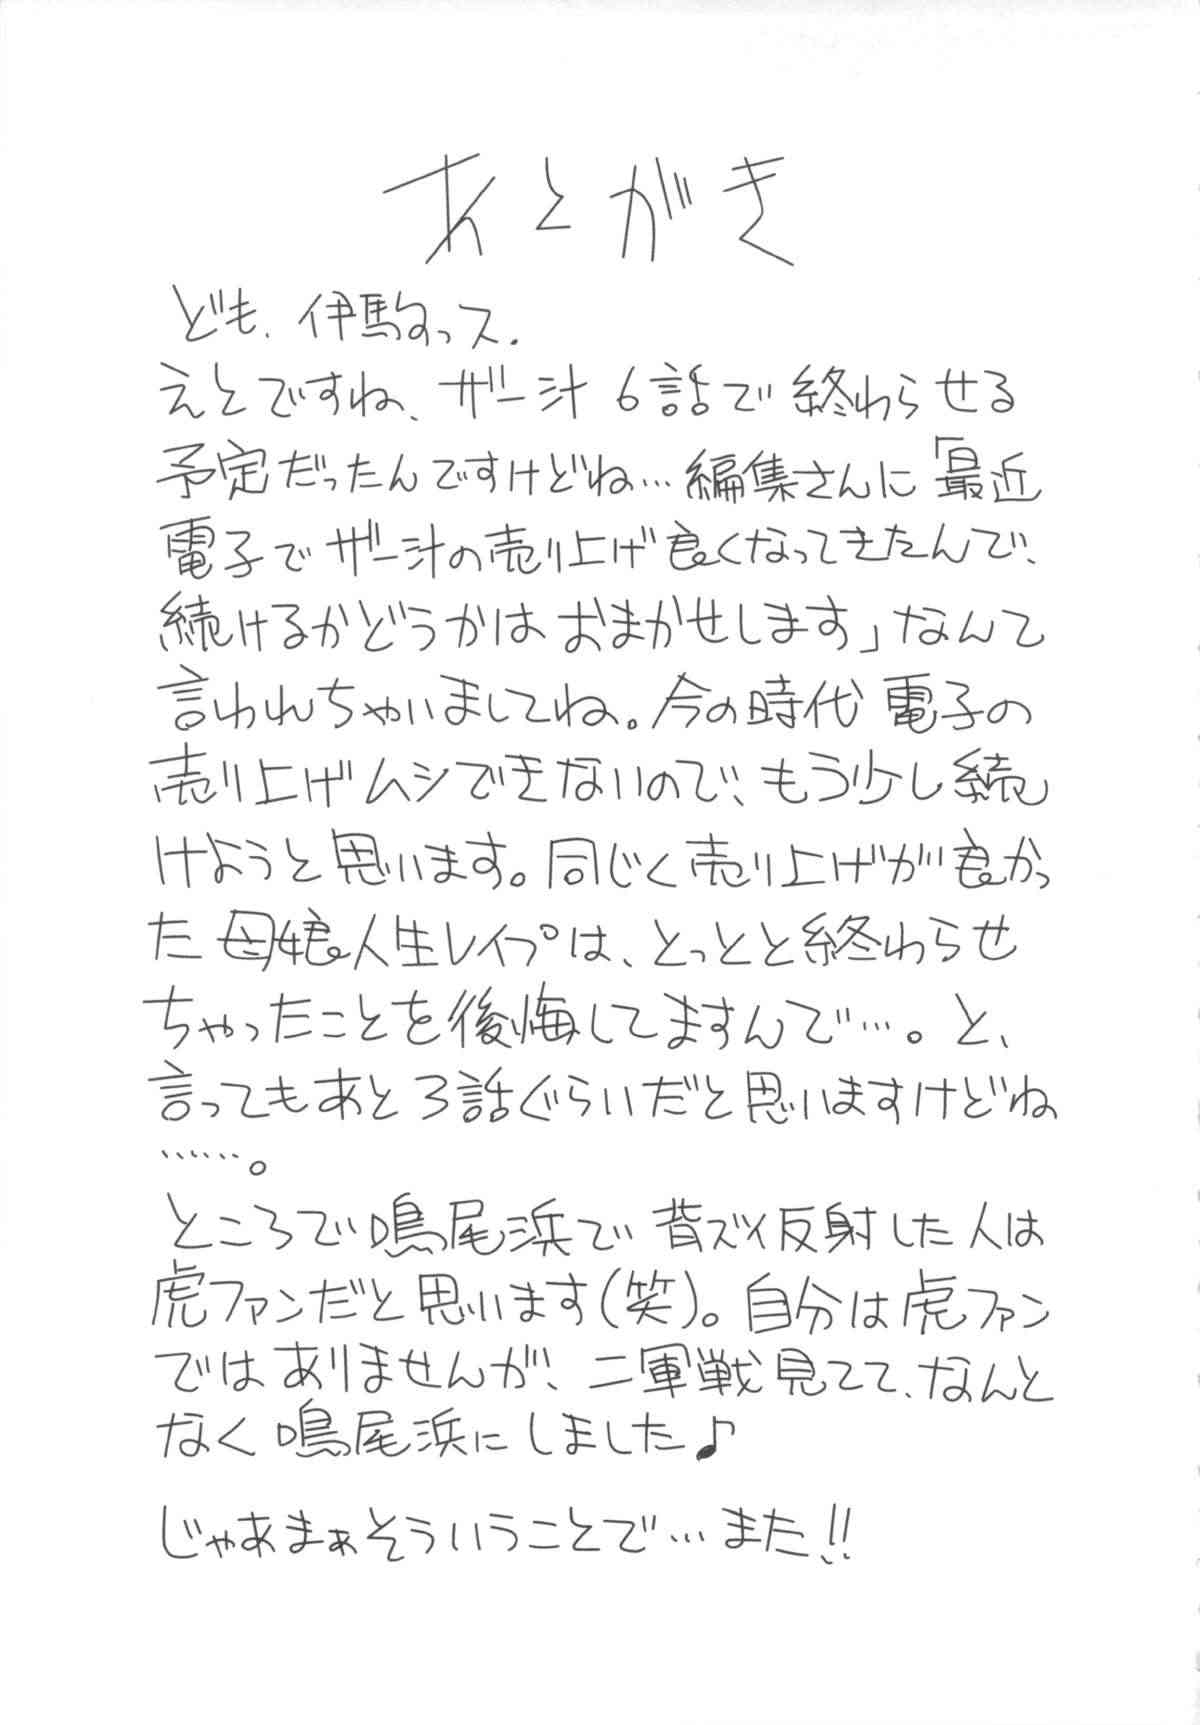 あとがき
ども、伊駒っス.
えとですね、ザー汁 6話で終わらせる
予定だったんですけどね…編集さんに「最近
電子でザー汁の売り上げ良くなってきたんで、
続けるかどうかは おまかせします」なんて
言われちゃいましてね。今の時代 電子の
売り上げムシできないので、もう少し続
けようと思います。同じく売り上げが良かっ
た 母娘人生レイプは、とっとと終わらせ
ちゃったことを後悔してますんで…。と、
言ってもあと3話ぐらいだと思いますけどね
……。
ところで鳴尾浜で 背ズイ反射した人は
虎ファンだと思います(笑)。自分は虎ファン
ではありませんが、二軍戦見てて、なんと
なく鳴尾浜にしました♪
じゃあまぁそういうことで…また!!